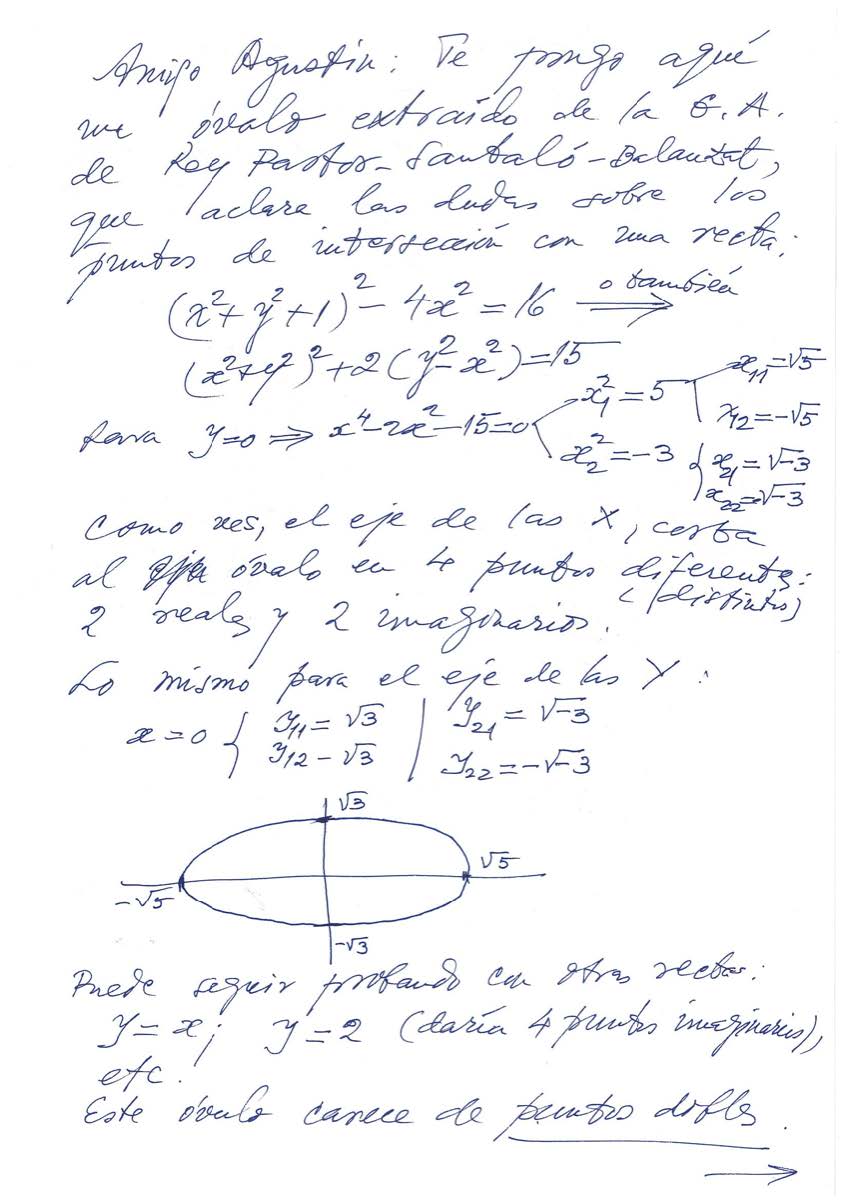 Amigo Agustín: Te pongo aquí
un óvalo extraído de la G.A.
de Rey Pastor-Santaló-Balanzat,
que aclara las dudas sobre los
puntos de intersección con una recta:
(x²+y²+1)² - 4x² = 16 ⟹ o también
(x²+y²)² + 2(y²-x²) = 15
para y=0 ⟹ x⁴-2x²-15=0
x₁² = 5 x₁₁=√5
x₁₂=-√5
x₂² = -3 x₂₁=√-3
x₂₂=-√-3
Como ves, el eje de las X, corta
al óvalo en 4 puntos diferentes:
(distintos)
2 reales y 2 imaginarios.
Lo mismo para el eje de las Y:
x=0 { y₁₁=√3 | y₂₁=√-3
y₁₂-√3 | y₂₂=-√-3
√3
-√5 √5
-√3
Puede seguir probando con otras rectas:
y=x; y=2 (daría 4 puntos imaginarios),
etc.
Este óvalo carece de puntos dobles.
→